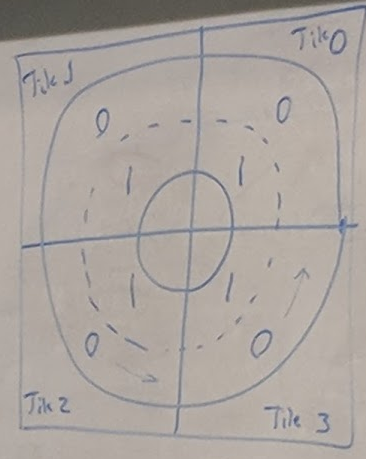 Tile 1
Tile 0
0
0
1
1
1
1
0
0
Tile 2
Tile 3